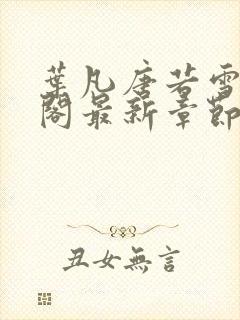 葉凡唐若雪
閣最新章節
丑女無言